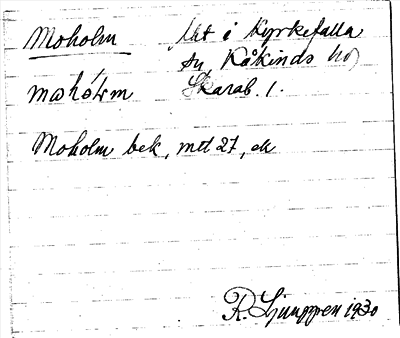 Moholm Mt i Kyrkefalla
sn, Kåkinds hd
Skarab. l.
Moholm bek, mtl 27, ek
R. Ljunggren 1930